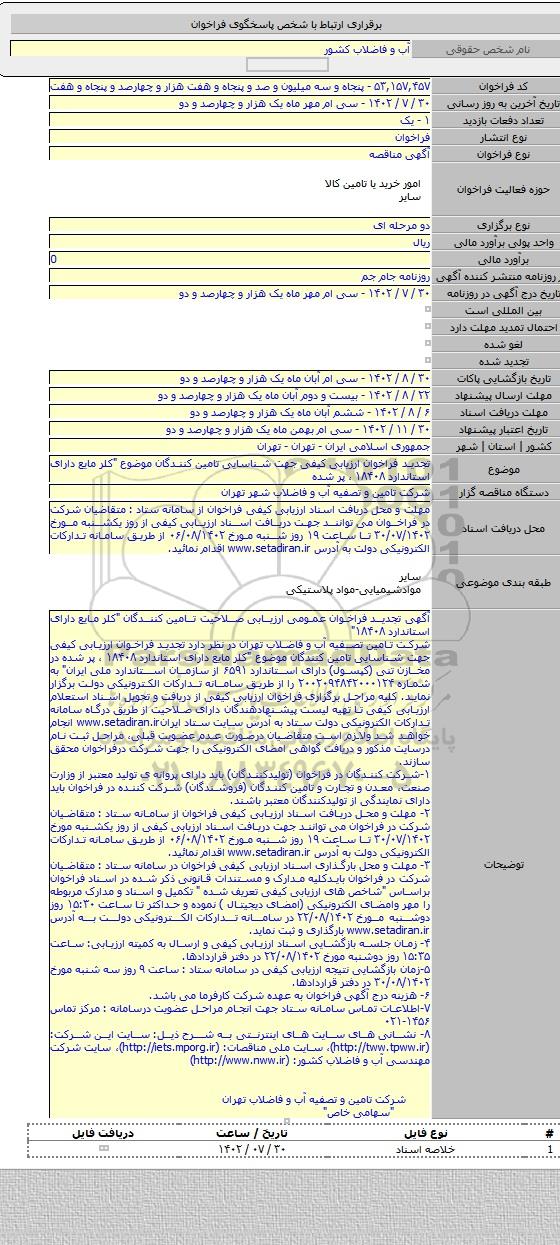 برقراری ارتباط با شخص پاسخگوی فراخوان
نام شخص حقوقی آب و فاضلاب کشور
کد فراخوان ۵۳,۱۵۷,۴۵۷ - پنجاه و سه میلیون و صد و پنجاه و هفت هزار و چهارصد و پنجاه و هفت
تاریخ آخرین به روز رسانی ۳۰ / ۷ / ۱۴۰۲ - سی ام مهر ماه یک هزار و چهارصد و دو
تعداد دفعات بازدید ۱ - یک
نوع انتشار فراخوان
نوع فراخوان آگهی مناقصه
حوزه فعالیت فراخوان امور خرید یا تامین کالا
سایر
نوع برگزاری دو مرحله ای
واحد پولی برآورد مالی ریال
برآورد مالی 0
روزنامه منتشر کننده آگهی روزنامه جام جم
تاریخ درج آگهی در روزنامه ۳۰ / ۷ / ۱۴۰۲ - سی ام مهر ماه یک هزار و چهارصد و دو
بین المللی است
احتمال تمدید مهلت دارد
لغو شده
تجدید شده
تاریخ بازگشایی پاکات ۳۰ / ۸ / ۱۴۰۲ - سی ام آبان ماه یک هزار و چهارصد و دو
مهلت ارسال پیشنهاد ۲۲ / ۸ / ۱۴۰۲ - بیست و دوم آبان ماه یک هزار و چهارصد و دو
مهلت دریافت اسناد ۶ / ۸ / ۱۴۰۲ - ششم آبان ماه یک هزار و چهارصد و دو
تاریخ اعتبار پیشنهاد ۳۰ / ۱۱ / ۱۴۰۲ - سی ام بهمن ماه یک هزار و چهارصد و دو
کشور | استان | شهر جمهوری اسلامی ایران - تهران - تهران
موضوع تجدید فراخوان ارزیابی کیفی جهت شناسایی تامین کنندگان موضوع "کلر مایع دارای
استاندارد ۱۸۴۰۸ ، پر شده
دستگاه مناقصه گزار شرکت تامین و تصفیه آب و فاضلاب شهر تهران
محل دریافت اسناد مهلت و محل دریافت اسناد ارزیابی کیفی فراخوان از سامانه ستاد : متقاضیان شرکت
در فراخوان می توانند جهت دریافت اسناد ارزیابی کیفی از روز یکشنبه مورخ
۳۰/۰۷/۱۴۰۲ تا ساعت ۱۹ روز شنبه مورخ ۰۶/۰۸/۱۴۰۲ از طریق سامانه تدارکات
الکترونیکی دولت به آدرس www.setadiran.ir اقدام نمائید.
طبقه بندی موضوعی سایر
موادشیمیایی-مواد پلاستیکی
توضیحات آگهی تجدید فراخوان عمومی ارزیابی صلاحیت تامین کنندگان "کلر مایع دارای
استاندارد ۱۸۴۰۸"
شرکت تامین تصفیه آب و فاضلاب تهران در نظر دارد تجدید فراخوان ارزیابی کیفی
جهت شناسایی تأمین کنندگان موضوع "کلر مایع دارای استاندارد ۱۸۴۰۸ ، پر شده در
مخازن تنی (کپسول) دارای استاندارد ۶۵۹۱ از سازمان استاندارد ملی ایران" به
شماره ۲۰۰۲۰۹۴۸۴۲۰۰۰۱۲۴ را از طریق سامانه تدارکات الکترونیکی دولت برگزار
نماید. کلیه مراحل برگزاری فراخوان ارزیابی کیفی از دریافت و تحویل اسناد استعلام
ارزیابی کیفی تا تهیه لیست پیشنهاددهندگان دارای صلاحیت از طریق درگاه سامانه
تدارکات الکترونیکی دولت ستاد به آدرس سایت ستاد ایرانwww.setadiran.ir انجام
خواهد شد ولازم است متقاضیان درصورت عدم عضویت قبلی، مراحل ثبت نام
درسایت مذکور و دریافت گواهی امضای الکترونیکی را جهت شرکت درفراخوان محقق
سازند.
۱-شرکت کنندگان در فراخوان (تولیدکنندگان) باید دارای پروانه ی تولید معتبر از وزارت
صنعت، معدن و تجارت و تامین کنندگان (فروشندگان) شرکت کننده در فراخوان باید
دارای نمایندگی از تولیدکنندگان معتبر باشند.
۲- مهلت و محل دریافت اسناد ارزیابی کیفی فراخوان از سامانه ستاد : متقاضیان
شرکت در فراخوان می توانند جهت دریافت اسناد ارزیابی کیفی از روز یکشنبه مورخ
۳۰/۰۷/۱۴۰۲ تا ساعت ۱۹ روز شنبه مورخ ۰۶/۰۸/۱۴۰۲ از طریق سامانه تدارکات
الکترونیکی دولت به آدرس www.setadiran.ir اقدام نمائید.
۳- مهلت و محل بارگذاری اسناد ارزیابی کیفی فراخوان در سامانه ستاد : متقاضیان
شرکت در فراخوان بایدکلیه مدارک و مستندات قانونی ذکر شده در اسناد فراخوان
براساس "شاخص های ارزیابی کیفی تعریف شده " تکمیل و اسناد و مدارک مربوطه
را مهر وامضای الکترونیکی (امضای دیجیتال ) نموده و حداکثر تا ساعت ۱۵:۳۰ روز
دوشنبه مورخ ۲۲/۰۸/۱۴۰۲ در سامانه تدارکات الکترونیکی دولت به آدرس
www.setadiran.ir بارگذاری و ثبت نماید.
۴- زمان جلسه بازگشایی اسناد ارزیابی کیفی و ارسال به کمیته ارزیابی: ساعت
۱۵:۳۵ روز دوشنبه مورخ ۲۲/۰۸/۱۴۰۲ در دفتر قراردادها.
۵-زمان بازگشایی نتیجه ارزیابی کیفی در سامانه ستاد : ساعت ۹ روز سه شنبه مورخ
۳۰/۰۸/۱۴۰۲ در دفتر قراردادها.
۶- هزینه درج آگهی فراخوان به عهده شرکت کارفرما می باشد.
۷-اطلاعات تماس سامانه ستاد جهت انجام مراحل عضویت درسامانه : مرکز تماس
۰۲۱-۱۴۵۶
۸- نشانی های سایت های اینترنتی به شرح ذیل: سایت این شرکت:
(http://tww.tpww.ir)، سایت ملی مناقصات: (http://iets.mporg.ir)، سایت شرکت
مهندسی آب و فاضلاب کشور: (http://www.nww.ir)
شرکت تامین و تصفیه آب و فاضلاب تهران
"سهامی خاص"
# نوع فایل تاریخ / ساعت دریافت فایل
1 خلاصه اسناد ۳۰ / ۰۷ / ۱۴۰۲